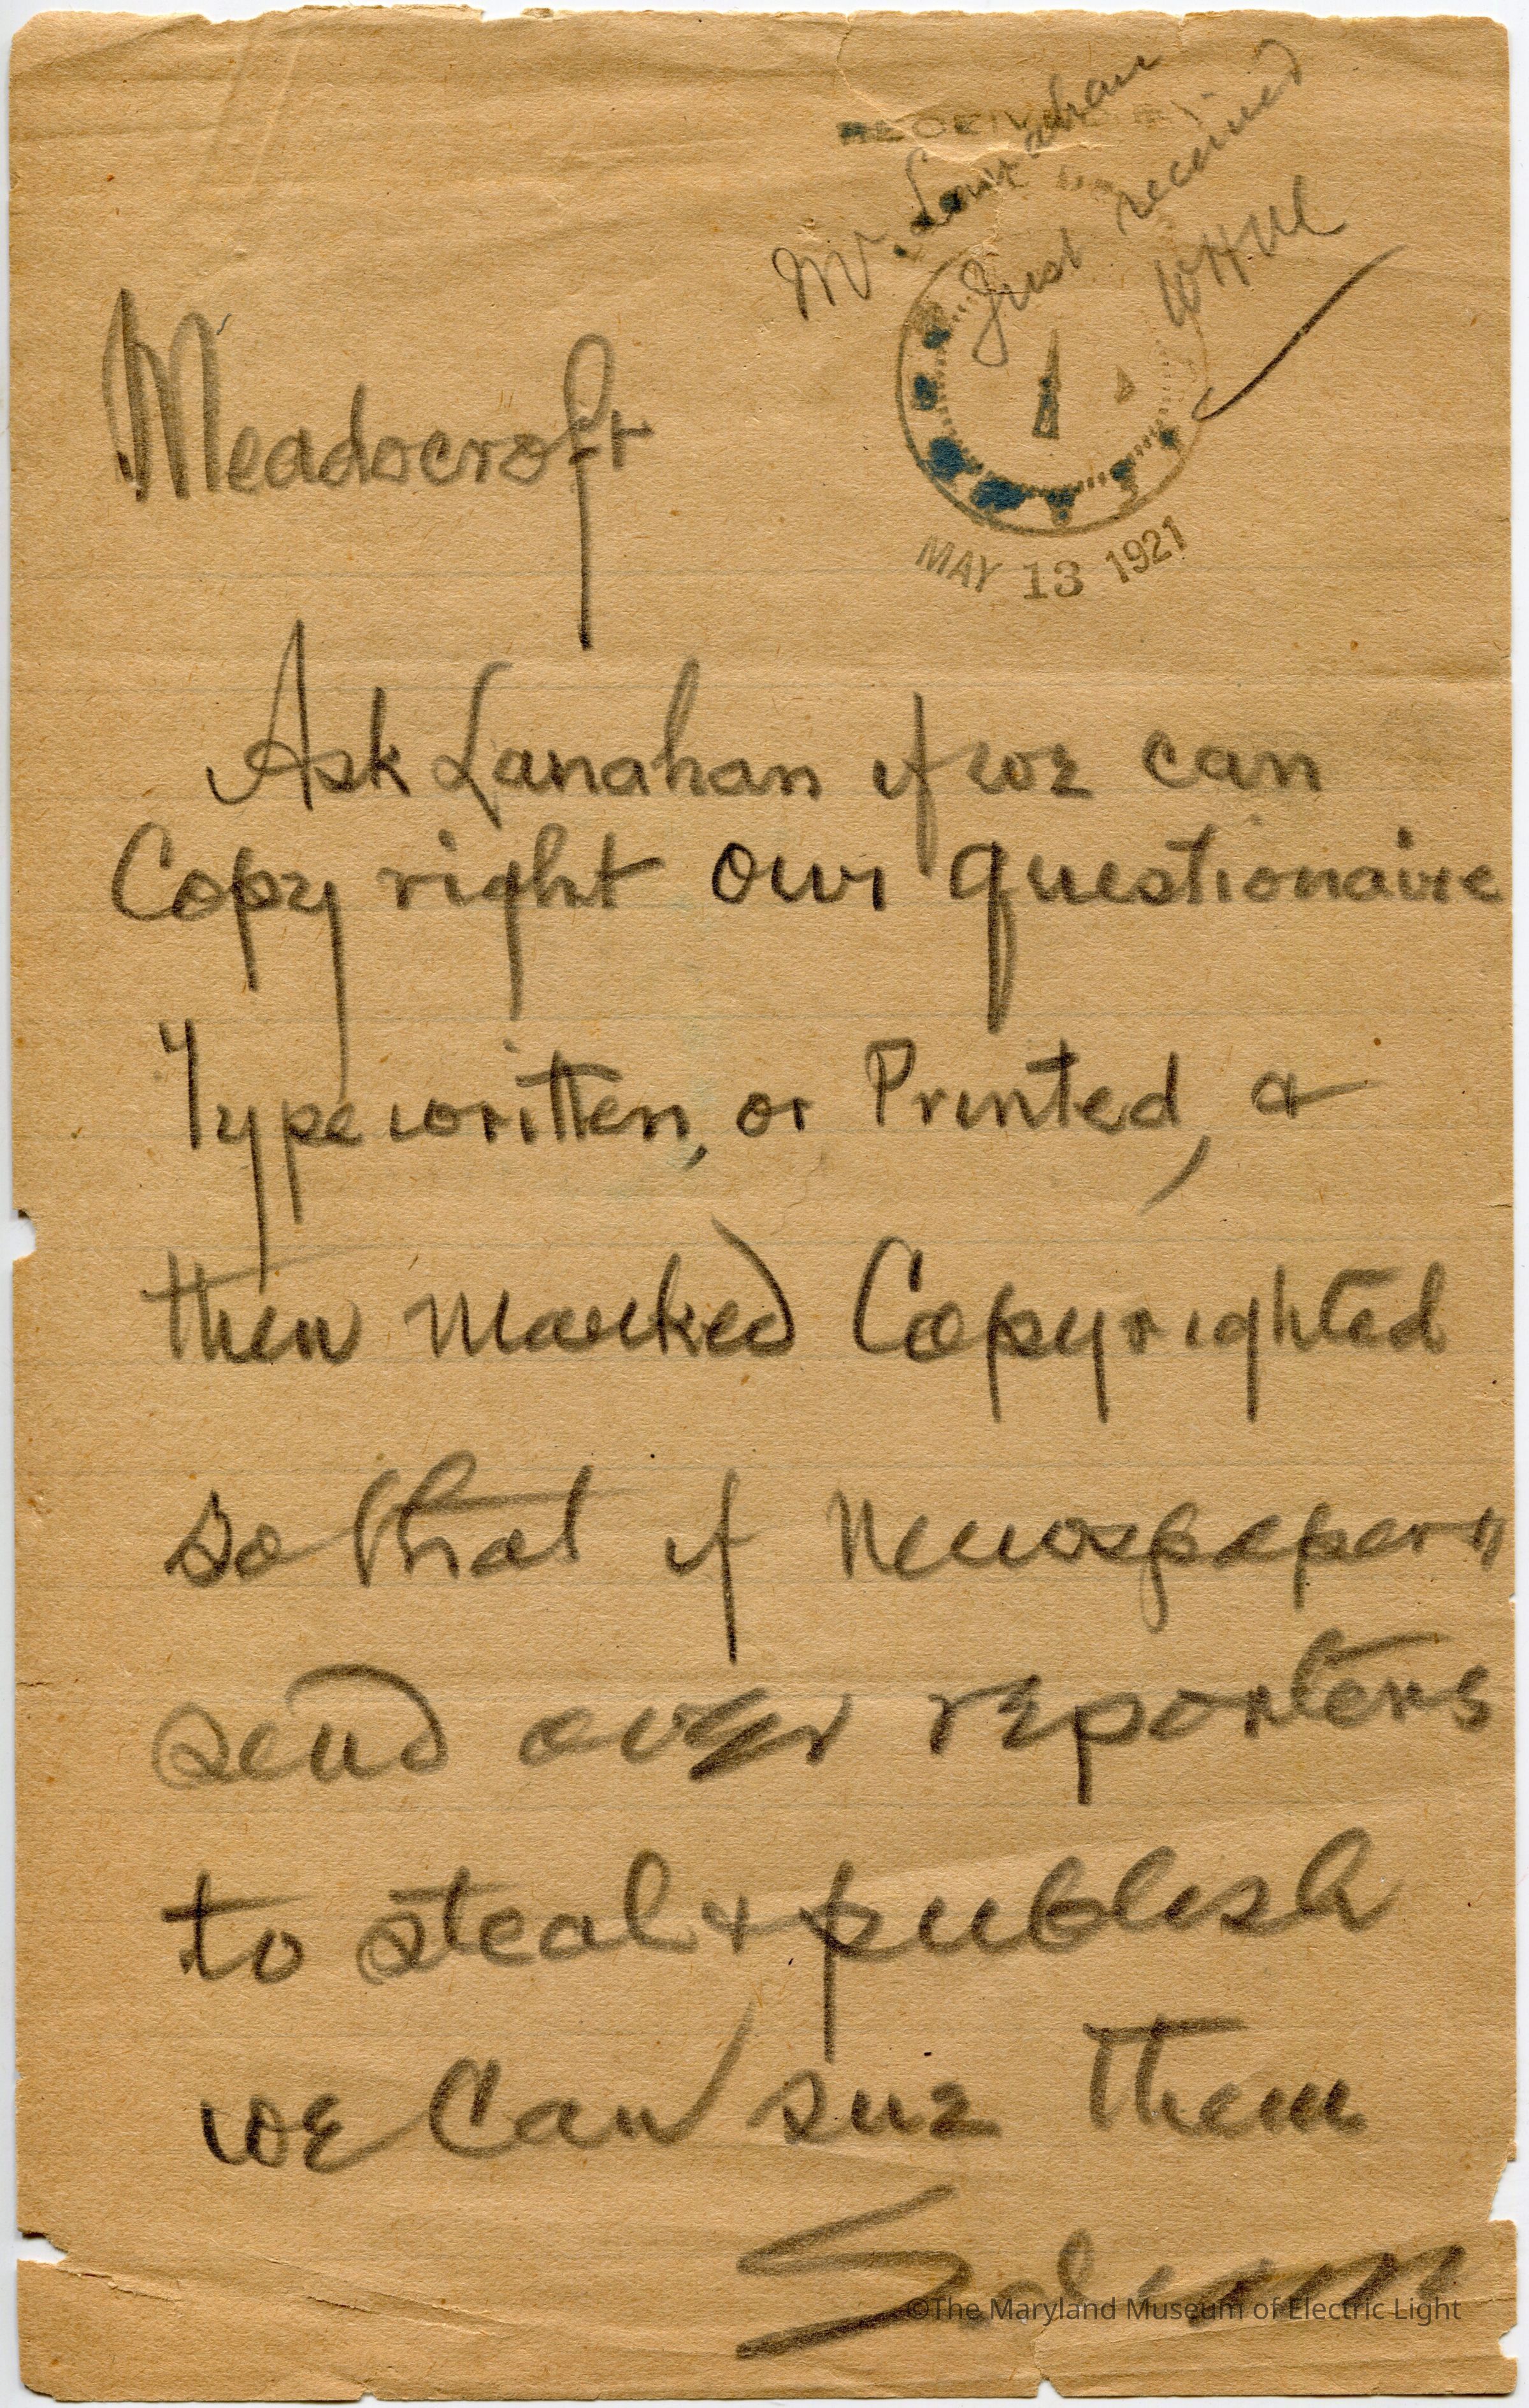 RECEIVED
Mr. Lanahan
Just received
WHM
MAY 13 1921
Meadocroft
Ask Lanahan if we can
Copy right our questionaire
Type written, or Printed, &
then marked Copyrighted
so that if Newspapers
send over reporters
to steal & publish
we Can sue them
©The Maryland Museum of Electric Light